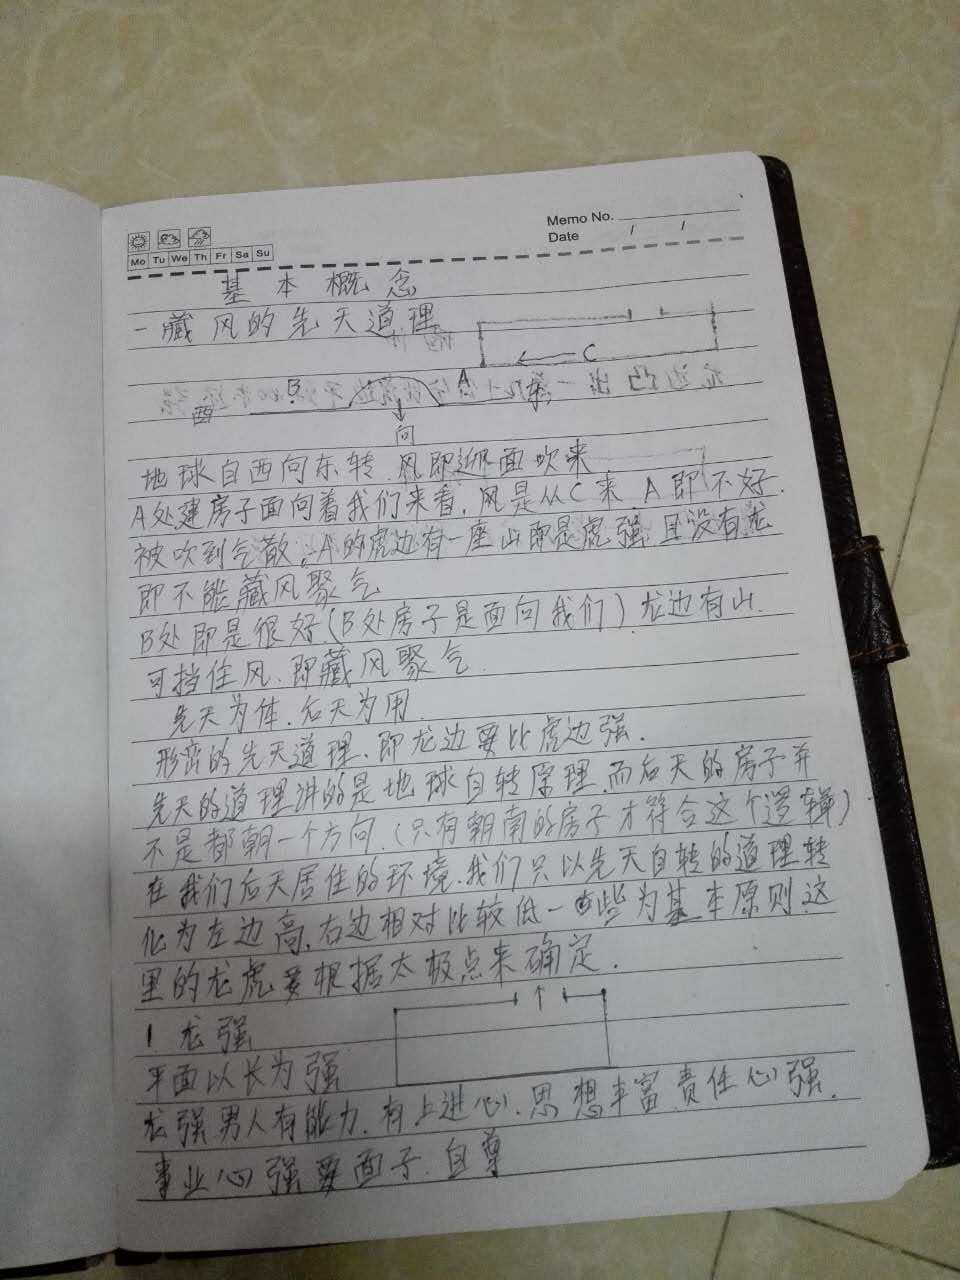 Memo No.
Date / /
Mo Tu We Th Fr Sa Su
基本概念
一藏风的先天道理
C
B A
西 东
向
地球自西向东转.风即迎面吹来
A处建房子面向着我们来看,风是从C来 A即不好.
被吹到气散,A的虎边有一座山即是虎强,且没有龙
即不能藏风聚气
B处即是很好(B处房子是面向我们)龙边有山
可挡住风.即藏风聚气.
先天为体.后天为用.
形峦的先天道理、即龙边要比虎边强.
先天的道理讲的是地球自转原理.而后天的房子并
不是都朝一个方向.(只有朝南的房子才符合这个逻辑)
在我们后天居住的环境.我们只以先天自转的道理转
化为左边高,右边相对比较低一些为基本原则.这
里的龙虎要根据太极点来确定.
1.龙强
平面以长为强
龙强男人有能力.有上进心.思想丰富.责任心强.
事业心强要面子.自尊